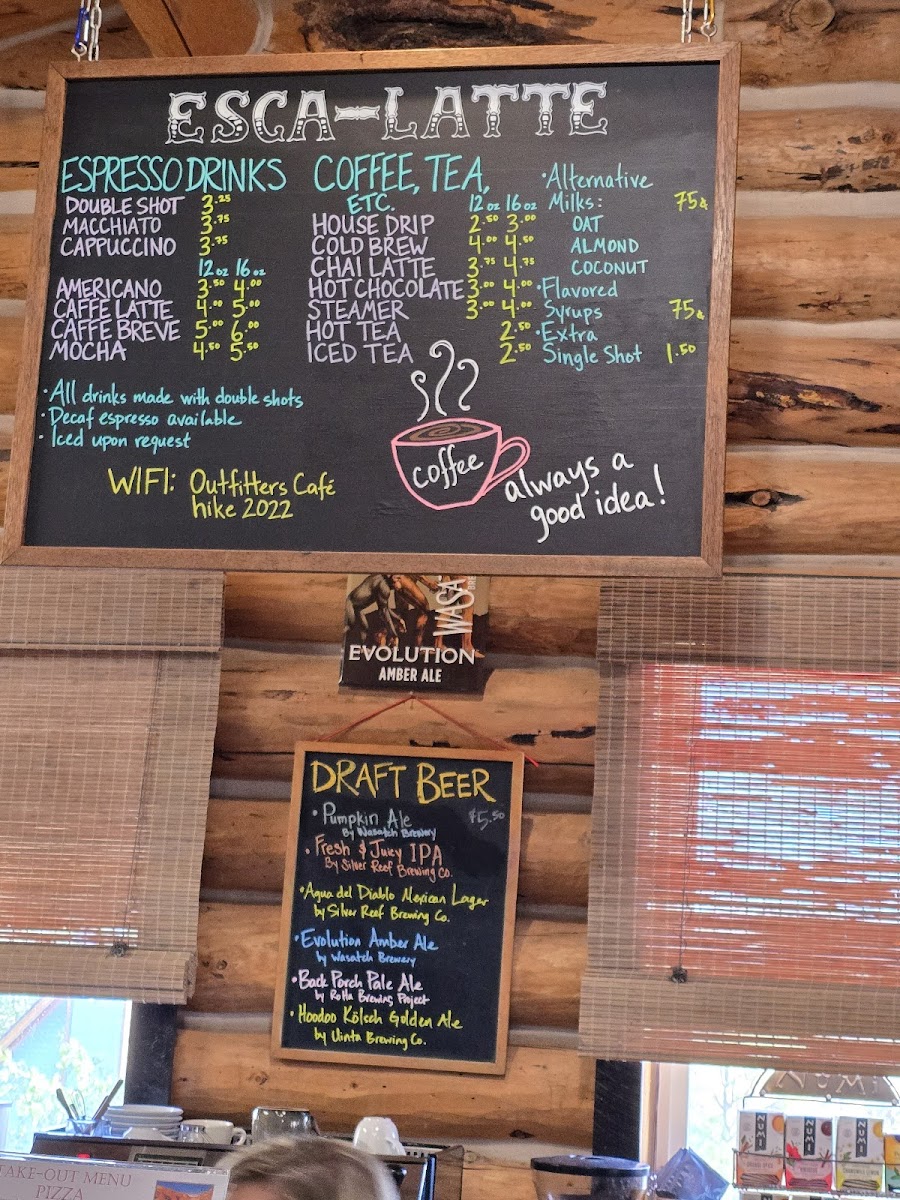 ESCA-LATTE
ESPRESSO DRINKS
DOUBLE SHOT 3.25
MACCHIATO 3.75
CAPPUCCINO 3.75
12 oz 16 oz
AMERICANO 3.50 4.00
CAFFE LATTE 4.00 5.00
CAFFE BREVE 5.00 6.00
MOCHA 4.50 5.50
• All drinks made with double shots
• Decaf espresso available
• Iced upon request
WIFI: Outfitters Café
hike 2022
COFFEE, TEA,
ETC. 12 oz 16 oz
HOUSE DRIP 2.50 3.00
COLD BREW 4.00 4.50
CHAI LATTE 3.75 4.75
HOT CHOCOLATE 3.00 4.00
STEAMER 3.00 4.00
HOT TEA 2.50
ICED TEA 2.50
• Alternative
Milks: 75¢
OAT
ALMOND
COCONUT
• Flavored
Syrups 75¢
• Extra
Single Shot 1.50
coffee
always a
good idea!
WASA
EVOLUTION
AMBER ALE
DRAFT BEER
• Pumpkin Ale $5.50
By Wasatch Brewery
• Fresh & Juicy IPA
By Silver Reef Brewing Co.
• Agua del Diablo Mexican Lager
by Silver Reef Brewing Co.
• Evolution Amber Ale
by Wasatch Brewery
• Back Porch Pale Ale
by RoHa Brewing Project
• Hoodoo Kölsch Golden Ale
by Uinta Brewing Co.
TAKE-OUT MENU
PIZZA
NUMI
NUMI
NUMI
NUMI